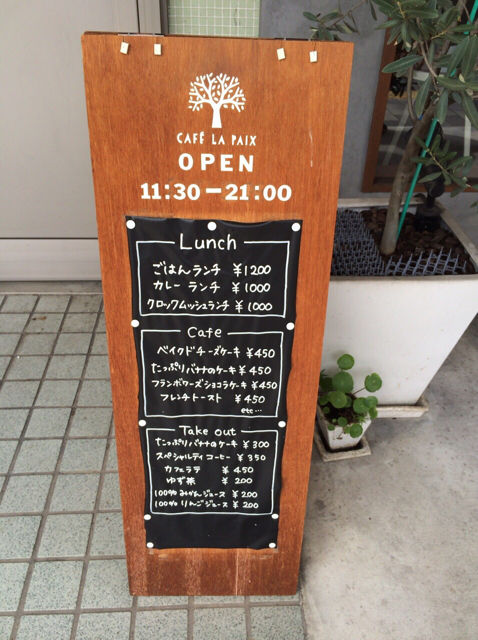 CAFÉ LA PAIX
OPEN
11:30-21:00
Lunch
ごはんランチ ¥1200
カレーランチ ¥1000
クロックムッシュランチ ¥1000
Cafe
ベイクドチーズケーキ ¥450
たっぷりバナナのケーキ ¥450
フランボワーズショコラケーキ ¥450
フレンチトースト ¥450
etc...
Take out
たっぷりバナナのケーキ ¥300
スペシャルティコーヒー ¥350
カフェラテ ¥450
ゆず茶 ¥200
100% みかんジュース ¥200
100% りんごジュース ¥200